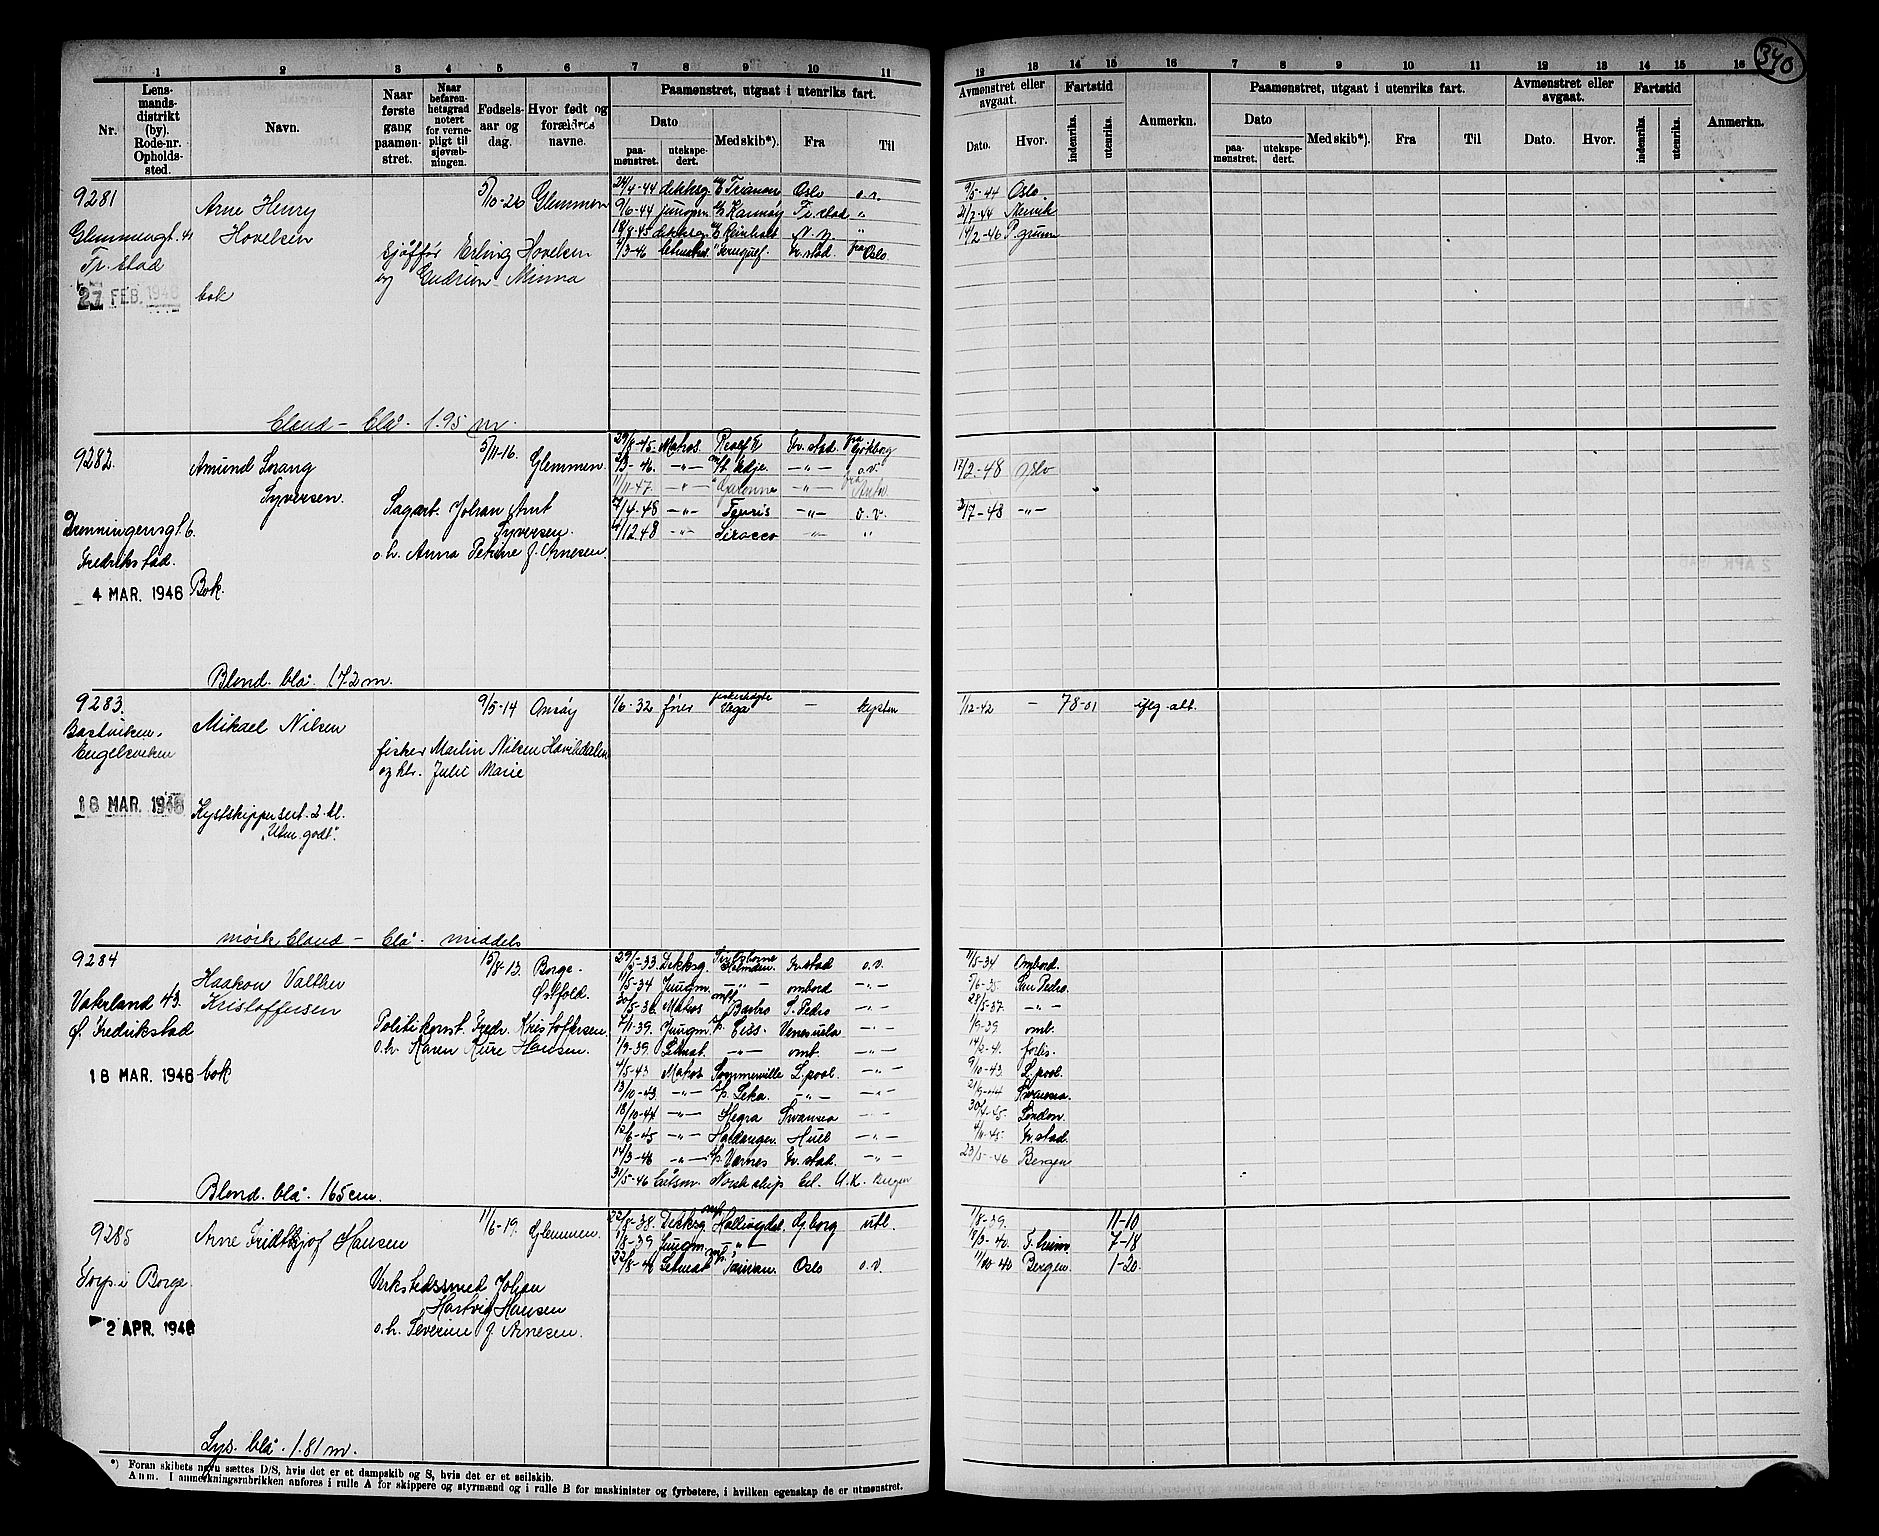 340
1 2 3 4 5 6 7 8 9 10 11
Nr.
Lens-
mands-
distrikt
(by).
Rode-nr.
Opholds-
sted.
Navn.
Naar
første
gang
paamøn-
stret.
Naar
befaren-
hetsgrad
notert
for verne-
pligt til
sjøvæb-
ningen.
Fødsels-
aar og
dag.
Hvor født og
forældres
navne.
Paamønstret, utgaat i utenriks fart.
Dato
paa-
mønstret.
utekspe-
dert.
Med skib*).
Fra
Til
12 13 14 15 16 7 8 9 10 11 12 13 14 15 16
Avmønstret eller
avgaat.
Dato.
Hvor.
Fartstid
indenriks.
utenriks.
Anmerkn.
Paamønstret, utgaat i utenriks fart.
Dato
paa-
mønstret.
utekspe-
dert.
Med skib*).
Fra
Til
Avmønstret eller
avgaat.
Dato.
Hvor.
Fartstid
indenriks.
utenriks.
Anmerkn.
9281
Arne Henry
Hovelsen
Glemmengt. 41
Fr.stad
27 FEB. 1946 bok
5/10-26 Glemmen
sjåffør Erling Hovelsen
og Gudrun Minna
24/4-44 dekksg. Trianon Oslo o.v. 9/5-44 Oslo
9/6-44 jungm. Karmøy Fr.stad " 21/7-44
18/8-45 N.N. " 14/2-46 P.grunn
7/3-46 Fr.stad fra Oslo
bland - blå 1.95 m.
9282.
Amund Srang
Syversen.
Dronningensgt. 6.
Fredrikstad.
4 MAR. 1946 Bok.
5/11-16. Glemmen.
Sagarb. Johan Arnt
Syversen.
o.h. Anna Petrine f. Arnesen.
29/8-45. Matros Fr.stad fra Gøtebog
2/3-46. -"- -"- o.v. 17/2-48 Oslo
11/11-47. -"- Garonne -"- fra
7/4-48 -"- Fenris -"- o.v. 3/7-48 -"-
4/12 48 -"- Sirocco -"- "
Blond. blå. 172 m.
9283.
Mikael Nilsen
Bastviken,
Engelsviken
18 MAR. 1946
Kystskippersert. 2. kl.
"Utm. godt".
9/5-14 Onsøy
fisker Martin Nilsen
og h. Julie Marie
1/6-32 fisker Vega - kysten 1/12-42 - 78-01 ifølg. att.
mørk bland - blå. middels
9284
Haakon Valther
Kristoffersen
Vaterland 43.
Ø. Fredrikstad
18 MAR. 1946 bok
15/8-13. Borge.
Østfold.
Politikonst. Fredr. Kristoffersen
o.h. Karen Hansen.
Dekksg. Fr.stad o.v. 11/5-34 Ombord.
11/5-34 Jungm. -"- ombord -"- 5/6-35 San Pedro.
30/5-36 Matros m/t Barbro S. Pedro -"- 28/5-37. -"-
7/11-39. Jungm. Venezuela -"- 1/9-39 omb.
1/9-39. Letmat. -"- omb. -"- 14/2-41. forlis.
4/5-43 Matros Sommerville L.pool. -"- 9/10-43. L.pool.
13/10-43. -"- Leka. -"- -"- Swansea.
18/10-44 -"- Hegra Swansea -"- London.
12/6-45 -"- Hardanger Hull -"- Fr.stad.
14/3-46 -"- Værnes Fr.stad. -"- 23/5-46 Bergen
31/5-46 Båtsm. Norsk skip U.K. Bergen
Blond. blå. 165 cm.
9285
Arne Fridtkjof Hansen
Torp i Borge.
2 APR. 1946
11/6-19. Glemmen.
Verkstedssmed Johan
Hartvig Hansen
o.h. Severine f. Arnesen.
22/8-38. Dekksg. m/t Hallingdal Gj.borg utl. 1/8-39. 11-10
1/8-39 Jungm. -"- 18/3-40. T.heim 7-18
22/8-40 Letmat. Taiwan. Oslo o.v. 11/10-40 Bergen. 1-20.
Lys. blå. 1.81 m.
*) Foran skibets navn sættes D/S, hvis det er et dampskib og S, hvis det er et seilskib.
Anm. I anmerkningsrubrikken anføres i rulle A for skippere og styrmænd og i rulle B for maskinister og fyrbøtere, i hvilken egenskap de er utmønstret.